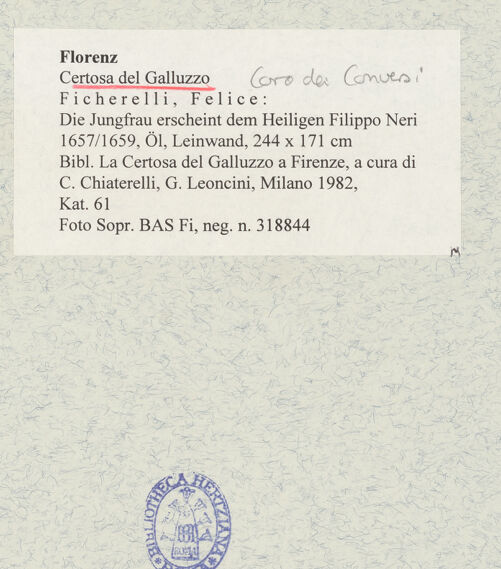 Florenz
Certosa del Galluzzo Coro dei Conversi
Ficherelli, Felice:
Die Jungfrau erscheint dem Heiligen Filippo Neri
1657/1659, Öl, Leinwand, 244 x 171 cm
Bibl. La Certosa del Galluzzo a Firenze, a cura di
C. Chiaterelli, G. Leoncini, Milano 1982,
Kat. 61
Foto Sopr. BAS Fi, neg. n. 318844
BIBLIOTHECA HERTZIANA
ROMA